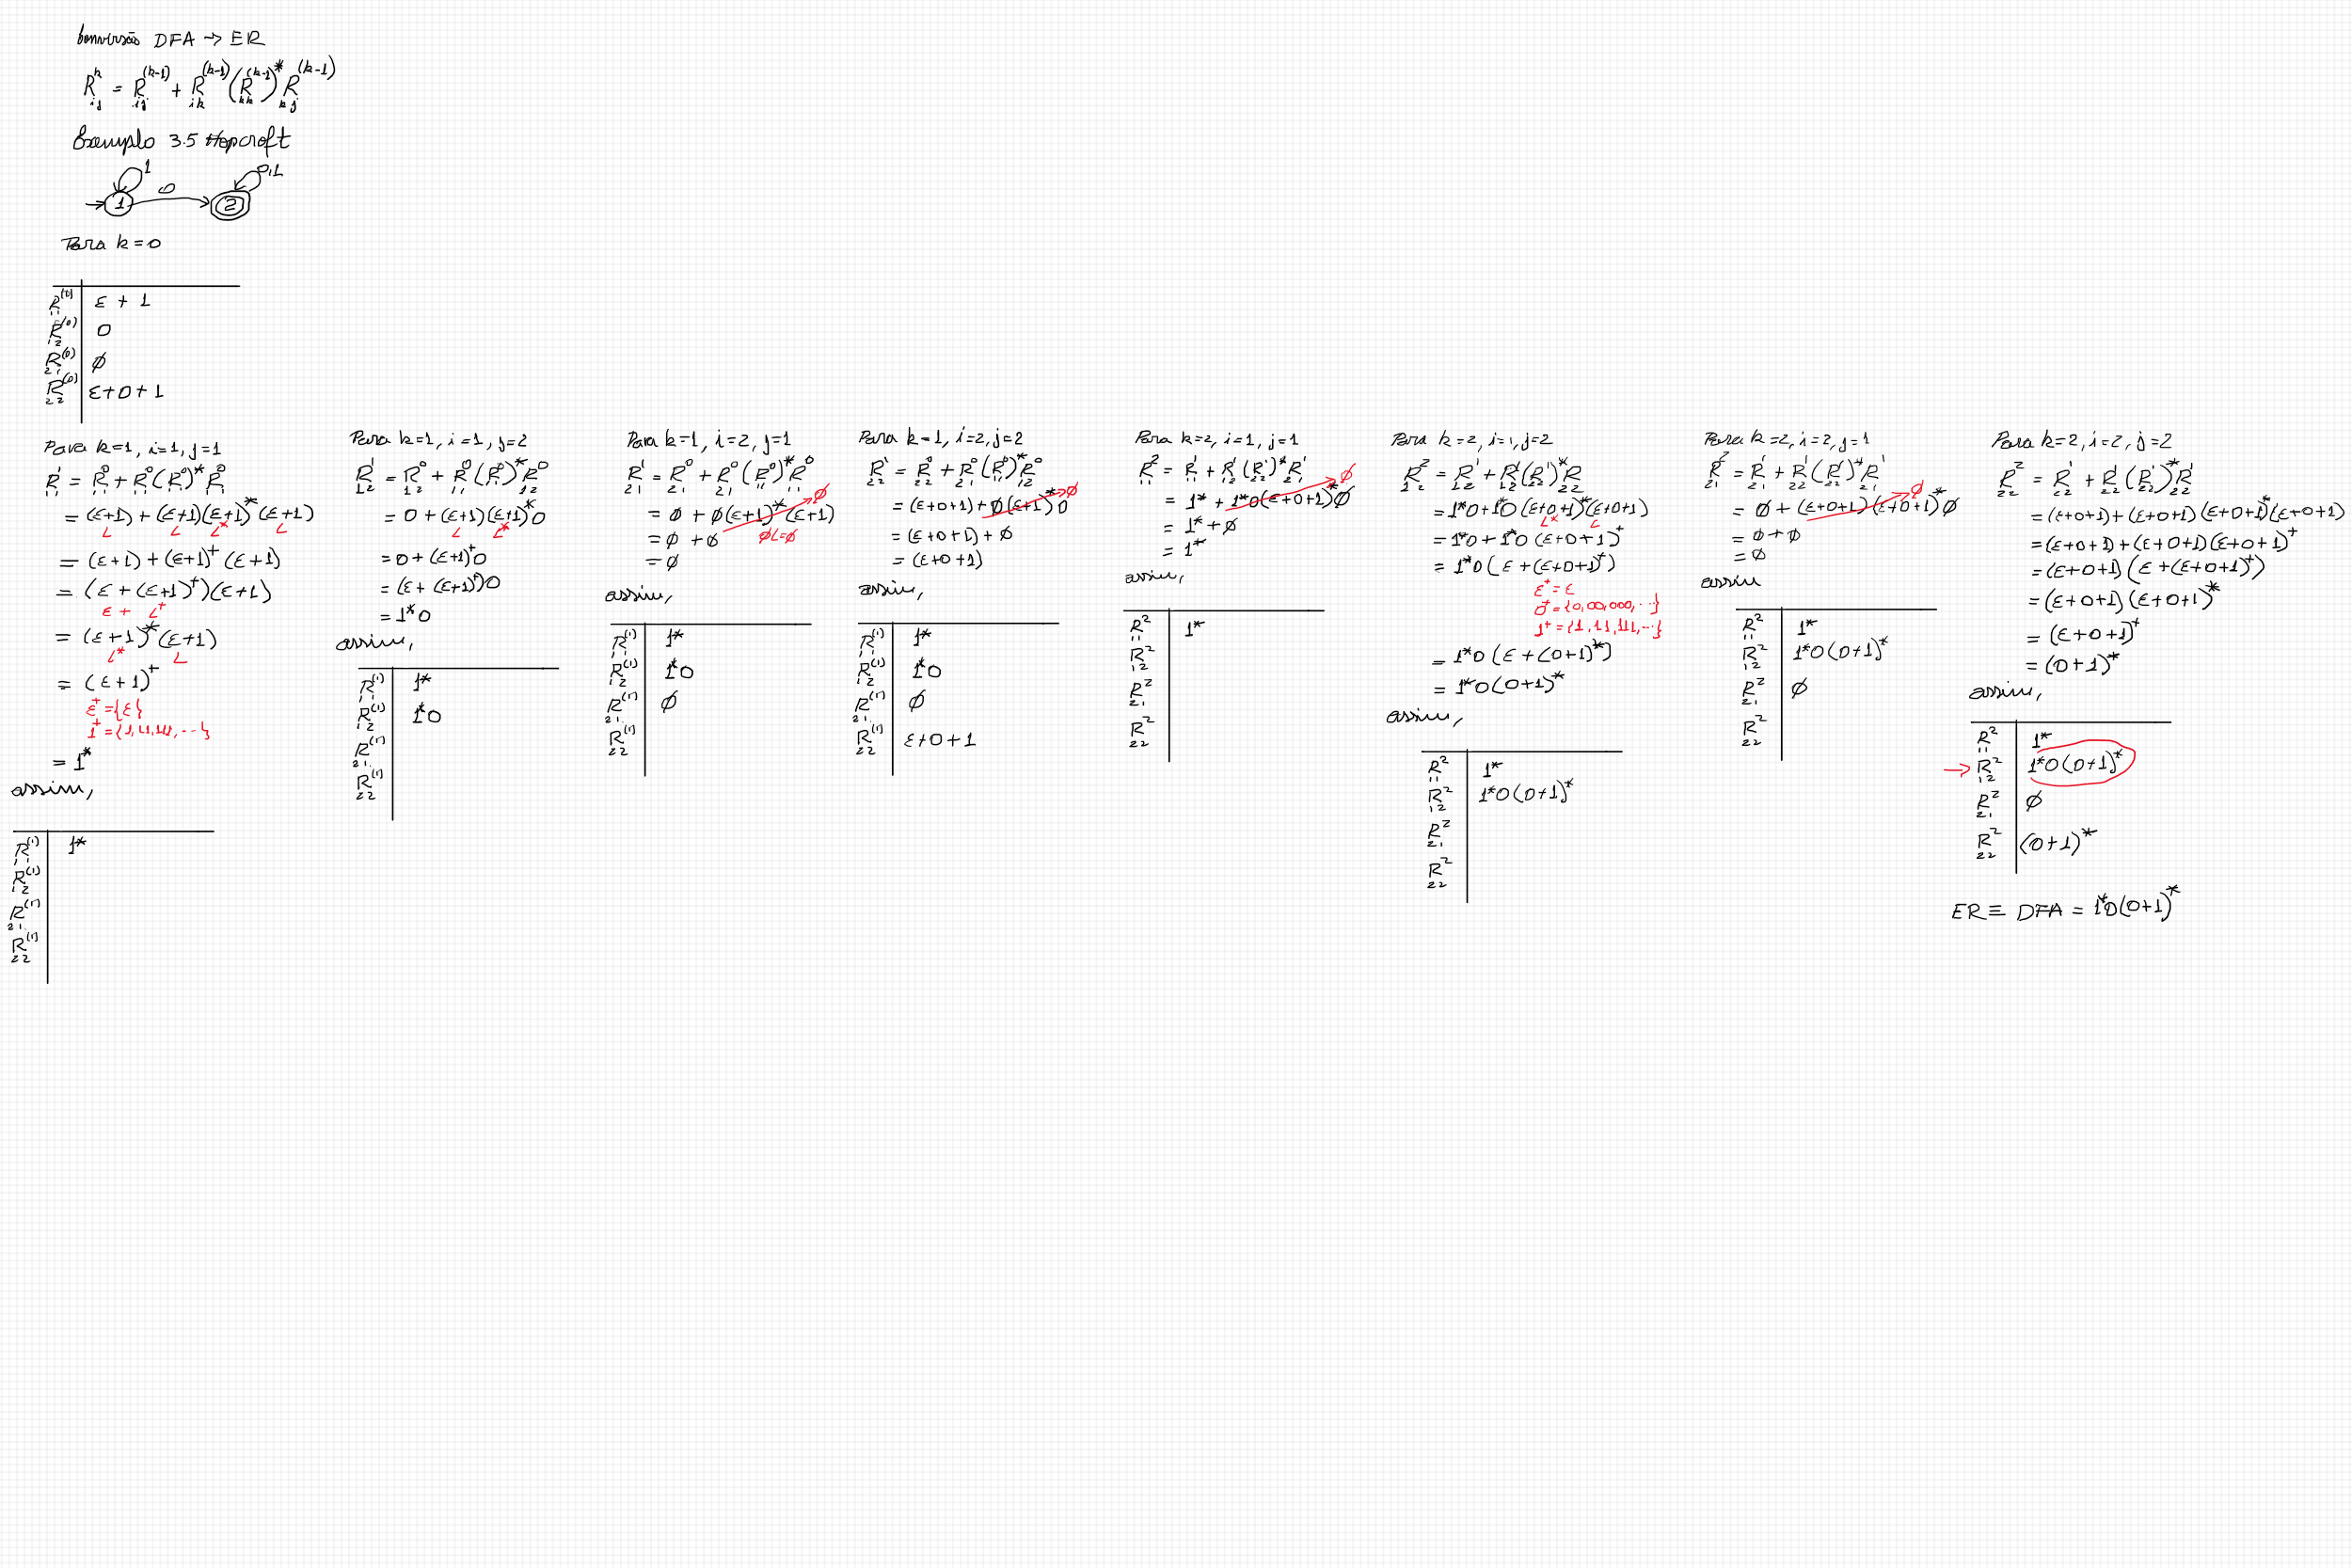 Conversão DFA → ER
R_{ij}^{k} = R_{ij}^{(k-1)} + R_{ik}^{(k-1)} (R_{kk}^{(k-1)})^* R_{kj}^{(k-1)}
Exemplo 3.5 Hopcroft
1 0 0,1
1 2
Para k=0
R_{11}^{(0)} ε + 1
R_{12}^{(0)} 0
R_{21}^{(0)} ∅
R_{22}^{(0)} ε+0+1
Para k=1, i=1, j=1
R_{11}^{1} = R_{11}^{0} + R_{11}^{0} (R_{11}^{0})^* R_{11}^{0}
= (ε+1) + (ε+1)(ε+1)^* (ε+1)
L L L^* L
= (ε+1) + (ε+1)^+ (ε+1)
= (ε + (ε+1)^+)(ε+1)
ε + L^+
= (ε+1)^* (ε+1)
L^* L
= (ε+1)^+
ε^+ = {ε}
1^+ = {1,11,111,...}
= 1^*
assim,
R_{11}^{(1)} 1^*
R_{12}^{(1)}
R_{21}^{(1)}
R_{22}^{(1)}
Para k=1, i=1, j=2
R_{12}^{1} = R_{12}^{0} + R_{11}^{0} (R_{11}^{0})^* R_{12}^{0}
= 0 + (ε+1)(ε+1)^* 0
L L^*
= 0 + (ε+1)^+ 0
= (ε + (ε+1)^+) 0
= 1^* 0
assim,
R_{11}^{(1)} 1^*
R_{12}^{(1)} 1^* 0
R_{21}^{(1)}
R_{22}^{(1)}
Para k=1, i=2, j=1
R_{21}^{1} = R_{21}^{0} + R_{21}^{0} (R_{11}^{0})^* R_{11}^{0}
= ∅ + ∅(ε+1)^* (ε+1) ∅
= ∅ + ∅ ∅L=∅
= ∅
assim,
R_{11}^{(1)} 1^*
R_{12}^{(1)} 1^* 0
R_{21}^{(1)} ∅
R_{22}^{(1)}
Para k=1, i=2, j=2
R_{22}^{1} = R_{22}^{0} + R_{21}^{0} (R_{11}^{0})^* R_{12}^{0}
= (ε+0+1) + ∅(ε+1)^* 0 ∅
= (ε+0+1) + ∅
= (ε+0+1)
assim,
R_{11}^{(1)} 1^*
R_{12}^{(1)} 1^* 0
R_{21}^{(1)} ∅
R_{22}^{(1)} ε+0+1
Para k=2, i=1, j=1
R_{11}^{2} = R_{11}^{1} + R_{12}^{1} (R_{22}^{1})^* R_{21}^{1}
= 1^* + 1^* 0(ε+0+1)^* ∅ ∅
= 1^* + ∅
= 1^*
assim,
R_{11}^{2} 1^*
R_{12}^{2}
R_{21}^{2}
R_{22}^{2}
Para k=2, i=1, j=2
R_{12}^{2} = R_{12}^{1} + R_{12}^{1} (R_{22}^{1})^* R_{22}
= 1^*0 + 1^*0 (ε+0+1)^* (ε+0+1)
L^* L
= 1^*0 + 1^*0 (ε+0+1)^+
= 1^*0 (ε + (ε+0+1)^+)
ε^+ = ε
0^+ = {0,00,000,...}
1^+ = {1,11,111,...}
= 1^*0 (ε + (0+1)^*)
= 1^*0 (0+1)^*
assim,
R_{11}^{2} 1^*
R_{12}^{2} 1^*0(0+1)^*
R_{21}^{2}
R_{22}^{2}
Para k=2, i=2, j=1
R_{21}^{2} = R_{21}^{1} + R_{22}^{1} (R_{22}^{1})^* R_{21}^{1}
= ∅ + (ε+0+1)(ε+0+1)^* ∅ ∅
= ∅ + ∅
= ∅
assim
R_{11}^{2} 1^*
R_{12}^{2} 1^*0(0+1)^*
R_{21}^{2} ∅
R_{22}^{2}
Para k=2, i=2, j=2
R_{22}^{2} = R_{22}^{1} + R_{22}^{1} (R_{22}^{1})^* R_{22}^{1}
= (ε+0+1) + (ε+0+1)(ε+0+1)^* (ε+0+1)
= (ε+0+1) + (ε+0+1)(ε+0+1)^+
= (ε+0+1)(ε + (ε+0+1)^+)
= (ε+0+1)(ε+0+1)^*
= (ε+0+1)^+
= (0+1)^*
assim,
R_{11}^{2} 1^*
→ R_{12}^{2} 1^*0(0+1)^*
R_{21}^{2} ∅
R_{22}^{2} (0+1)^*
ER ≡ DFA = 1^*0(0+1)^*